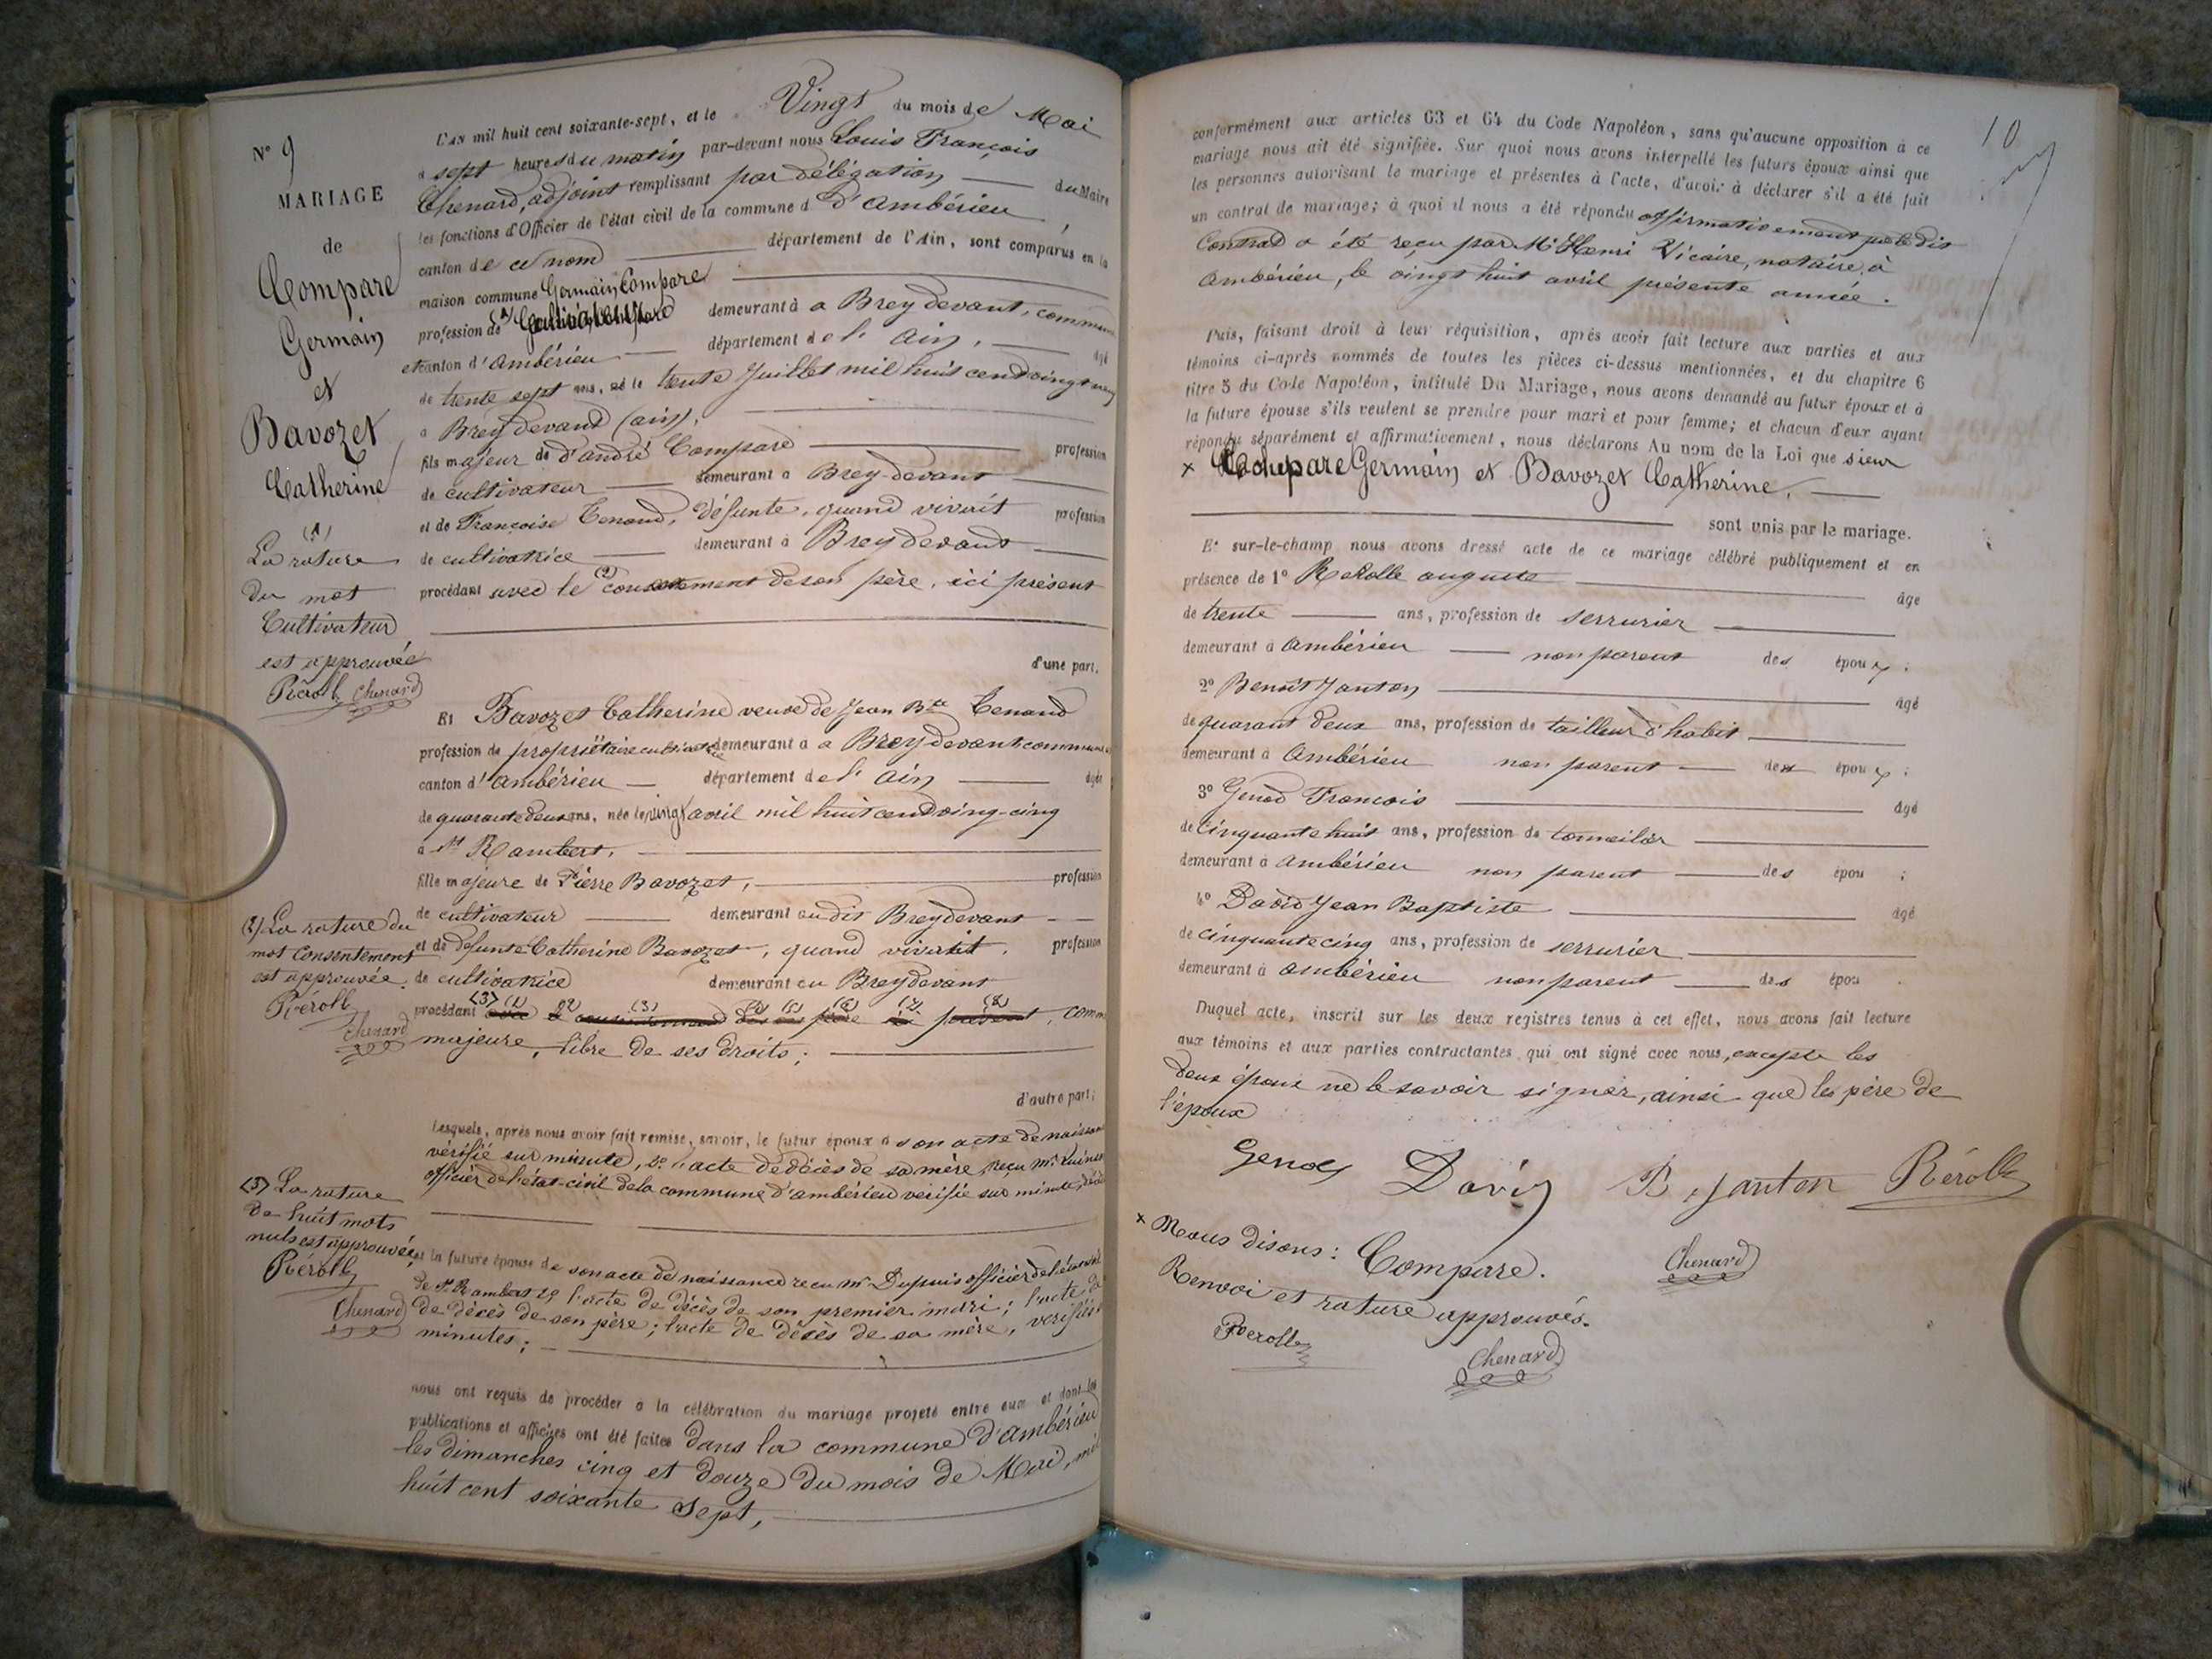 N° 9
MARIAGE
de
Compare
Germain
et
Bavozet
Catherine
(1)
La rature
du mot
Cultivateur
est approuvée
Rérolle Chenard
(2) La rature du
mot Consentement
est approuvée.
Rérolle
Chenard
(3) La rature
de huit mots
nuls est approuvée
Rérolle
Chenard
L'AN mil huit cent soixante-sept, et le Vingt du mois de Mai
à sept heures du matin par-devant nous Louis François
Chenard, adjoint remplissant par délégation du Maire
les fonctions d'Officier de l'état civil de la commune d d'Ambérieu
canton de ce nom département de l'Ain, sont comparus en la
maison commune Germain Compare
profession de (1) demeurant à a Brey devant, commune
et canton d'Ambérieu département de l'Ain, âgé
de trente sept ans, né le trente Juillet mil huit cent vingt neuf
à Brey devant (ain),
fils majeur de d'andré Compare profession
de cultivateur demeurant à Brey-devant
et de Françoise Tenand, défunte, quand vivait profession
de cultivatrice demeurant à Brey devant
procédant avec le (2) consentement de son père, ici présent
d'une part.
Et Bavozet Catherine veuve de Jean Bte Tenand
profession de propriétaire cultivatrice demeurant à a Brey devant commune
canton d'ambérieu département de l'ain âgée
de quarante deux ans, née le vingt avril mil huit cent vingt-cinq
à St Rambert,
fille majeure de Pierre Bavozet, profession
de cultivateur demeurant audit Brey devant
et de défunte Catherine Bavozet, quand vivait, profession
de cultivatrice demeurant au Brey devant
procédant (3) (1) (2) (3) (4) (5) (6) (7) (8) présent, comme
majeure, libre de ses droits;
d'autre part;
Lesquels, après nous avoir fait remise, savoir, le futur époux d son acte de naissance
vérifié sur minute, 2° l'acte de décès de sa mère, reçu Mr
officier de l'état-civil de la commune d'ambérieu vérifié sur minute,
et la future épouse de son acte de naissance recu mr Dupuis officier de l'état civil
de St Rambert 2° l'acte de décès de son premier mari; l'acte de
de décès de son père; l'acte de décès de sa mère, vérifiés
minutes;
nous ont requis de procéder à la célébration du mariage projeté entre eux et dont les
publications et affiches ont été faites dans la commune d'ambérieu
les dimanches cinq et douze du mois de Mai, mil
huit cent soixante sept,
10
conformément aux articles 63 et 64 du Code Napoléon, sans qu'aucune opposition à ce
mariage nous ait été signifiée. Sur quoi nous avons interpellé les futurs époux ainsi que
les personnes autorisant le mariage et présentes à l'acte, d'avoir à déclarer s'il a été fait
un contrat de mariage; à quoi il nous a été répondu affirmativement que le dit
Contrat a été reçu par Me Henri Vicaire, notaire, à
Ambérieu, le vingt huit avril présente année.
Puis, faisant droit à leur réquisition, après avoir fait lecture aux parties et aux
témoins ci-après nommés de toutes les pièces ci-dessus mentionnées, et du chapitre 6
titre 5 du Code Napoléon, intitulé Du Mariage, nous avons demandé au futur époux et à
la future épouse s'ils veulent se prendre pour mari et pour femme; et chacun d'eux ayant
répondu séparément et affirmativement, nous déclarons Au nom de la Loi que sieur
x Compare Germain et Bavozet Catherine,
sont unis par le mariage.
Et sur-le-champ nous avons dressé acte de ce mariage célébré publiquement et en
présence de 1° Rerolle auguste âgé
de trente ans, profession de serrurier
demeurant à Ambérieu non parent des époux;
2° Benoit Janton âgé
de quarant deux ans, profession de tailleur d'habit
demeurant à Ambérieu non parent des époux;
3° Genod Francois âgé
de cinquante huit ans, profession de tonnelier
demeurant à ambérieu non parent des épou;
4° David Jean Baptiste âgé
de cinquante cinq ans, profession de serrurier
demeurant à ambérieu non parent des épou.
Duquel acte, inscrit sur les deux registres tenus à cet effet, nous avons fait lecture
aux témoins et aux parties contractantes qui ont signé avec nous, excepte les
deux époux ne le savoir signer, ainsi que les père de
l'époux
Genod David B Janton Rérolle
x Nous disons: Compare. Chenard
Renvoi et rature approuvés.
Rerolle
Chenard